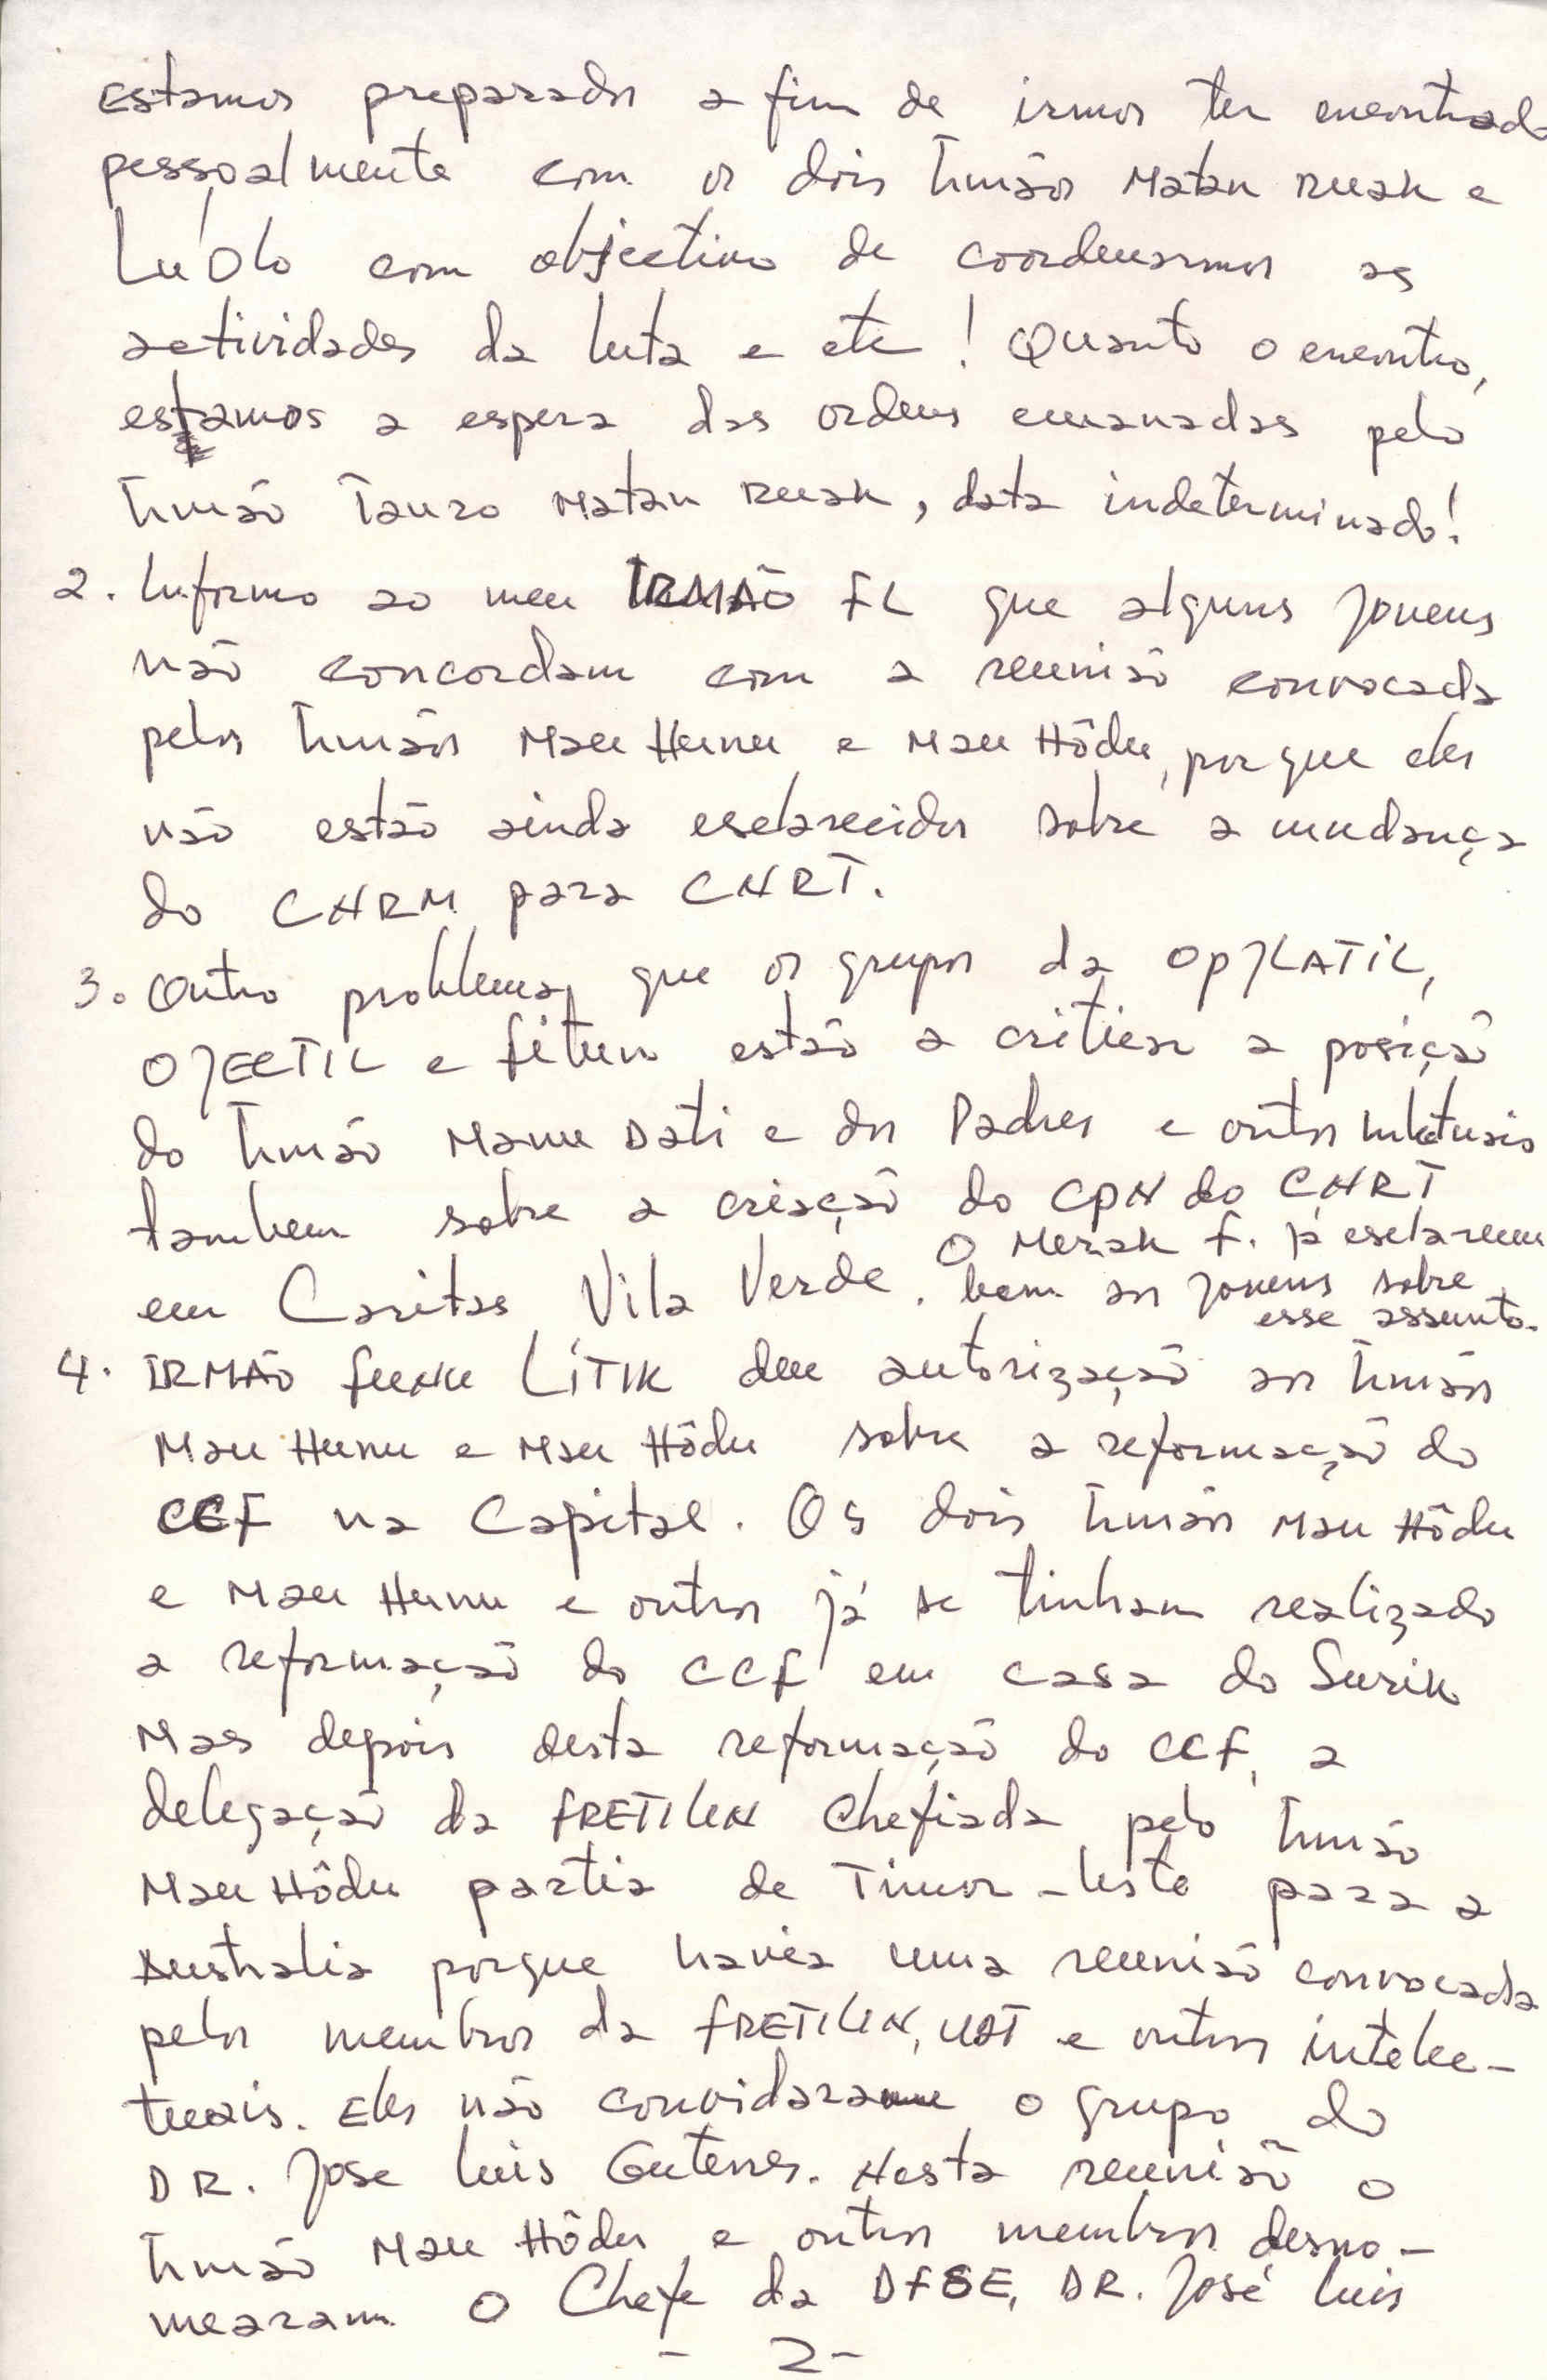 Estamos preparados a fim de irmos ter encontrado
pessoalmente com os dois Irmãos Matan Ruak e
Lu'Olo com objectivo de coordenarmos as
actividades da luta e etc! Quanto o encontro,
estamos a espera das ordens emanadas pelo
Irmão Tauro Matan Ruak, data indeterminado!
2. Informo ao meu IRMÃO FL que alguns jovens
não concordam com a reunisão convocada
pelos Irmãos Mau Hunu e Mau Hôdu, porque eles
não estão ainda esclarecidos sobre a mudança
do CNRM para CNRT.
3. Outro problema, que os grupos da OPJLATIL,
OJECTIL e Fitun estão a criticar a posição
do Irmão Manu Dati e dos Padres e outros
tambem sobre a criação do CPN do CNRT
em Caritas Vila Verde. O Merak F. já esclareceu
bem aos jovens sobre
esse assunto.
4. IRMÃO FUNU LÍTIK deu autorização aos Irmãos
Mau Hunu e Mau Hôdu sobre a reformação do
CCF na Capital. Os dois Irmãos Mau Hôdu
e Mau Hunu e outros já se tinham realizado
a reformação do CCF em casa do Surik
Mas depois desta reformação do CCF, a
delegação da FRETILIN Chefiada pelo Irmão
Mau Hôdu partia de Timor-Leste para a
Australia porque havia uma reunisão convocada
pelos membros da FRETILIN, UDT e outros intelec-
tuais. Eles não convidaram o grupo do
DR. Jose Luis Guterres. Nesta reunisão o
Irmão Mau Hôdu e outros membros desno-
mearam o Chefe da DFSE, DR. José Luis
- 2 -